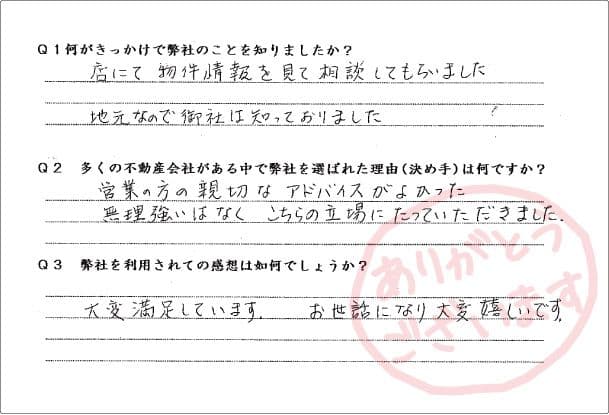 Q1何がきっかけで弊社のことを知りましたか？
店にて物件情報を見て相談してもらいました
地元なので御社は知っておりました
Q2 多くの不動産会社がある中で弊社を選ばれた理由(決め手)は何ですか？
営業の方の親切なアドバイスがよかった
無理強いはなく こちらの立場にたっていただきました.
Q3 弊社を利用されての感想は如何でしょうか？
大変満足しています. お世話になり大変嬉しいです.
ありがとう
ございます